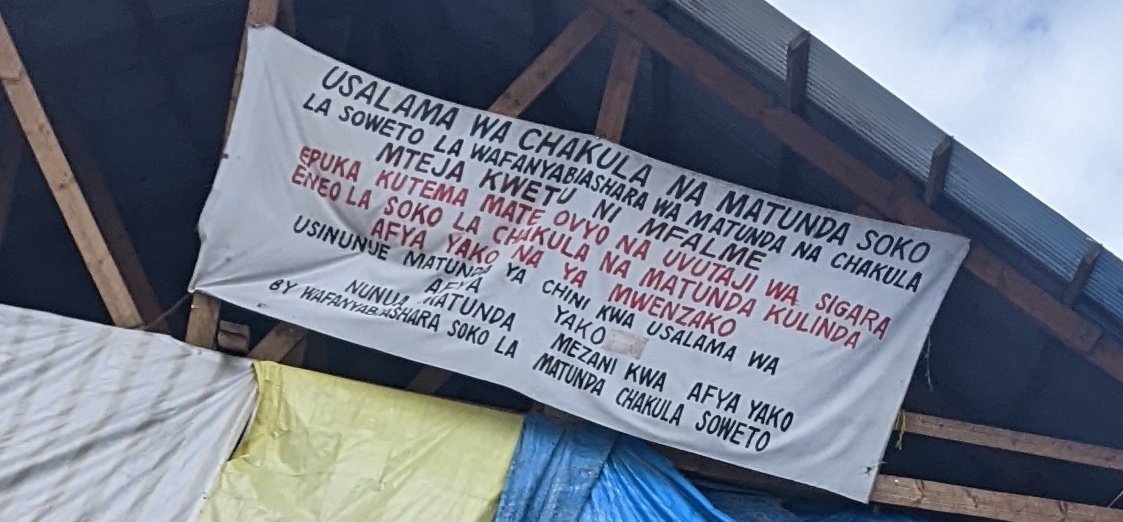 USALAMA WA CHAKULA NA MATUNDA SOKO
LA SOWETO LA WAFANYABIASHARA WA MATUNDA NA CHAKULA
MTEJA KWETU NI MFALME
EPUKA KUTEMA MATE OVYO NA UVUTAJI WA SIGARA
ENEO LA SOKO LA CHAKULA NA MATUNDA KULINDA
AFYA YAKO NA YA MWENZAKO
USINUNUE MATUNDA YA CHINI KWA USALAMA WA
AFYA YAKO
NUNUA MATUNDA MEZANI KWA AFYA YAKO
BY WAFANYABIASHARA SOKO LA MATUNDA CHAKULA SOWETO